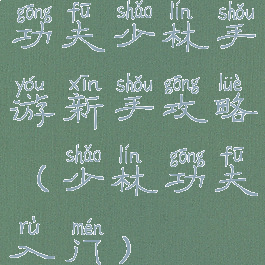 gōng fū shǎo lín shǒu
功夫少林手
yóu xīn shǒu gōng lüè
游新手攻略
shǎo lín gōng fū
(少林功夫
rù mén
入门)